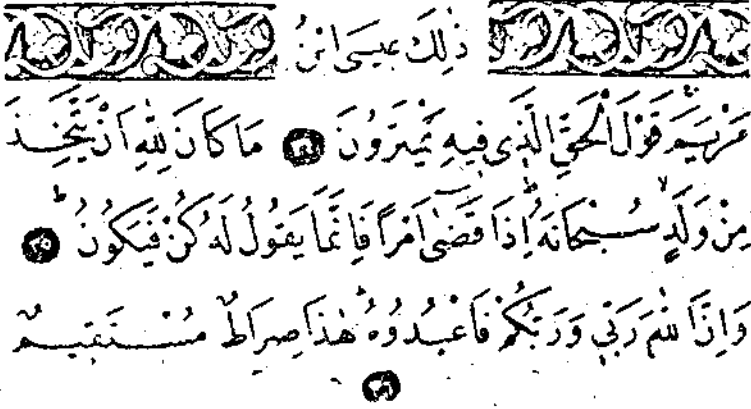 ذٰلِكَ عِيسَى ابْنُ
مَرْيَمَۚ قَوْلَ الْحَقِّ الَّذ۪ى ف۪يهِ يَمْتَرُونَ ﴿٣٤﴾ مَا كَانَ لِلّٰهِ اَنْ يَتَّخِذَ
مِنْ وَلَدٍۙ سُبْحَانَهُۜ اِذَا قَضٰٓى اَمْرًا فَاِنَّمَا يَقُولُ لَهُ كُنْ فَيَكُونُۜ ﴿٣٥﴾
وَاِنَّ اللّٰهَ رَبّ۪ي وَرَبُّكُمْ فَاعْبُدُوهُۜ هٰذَا صِرَاطٌ مُسْتَق۪يمٌ
﴿٣٦﴾